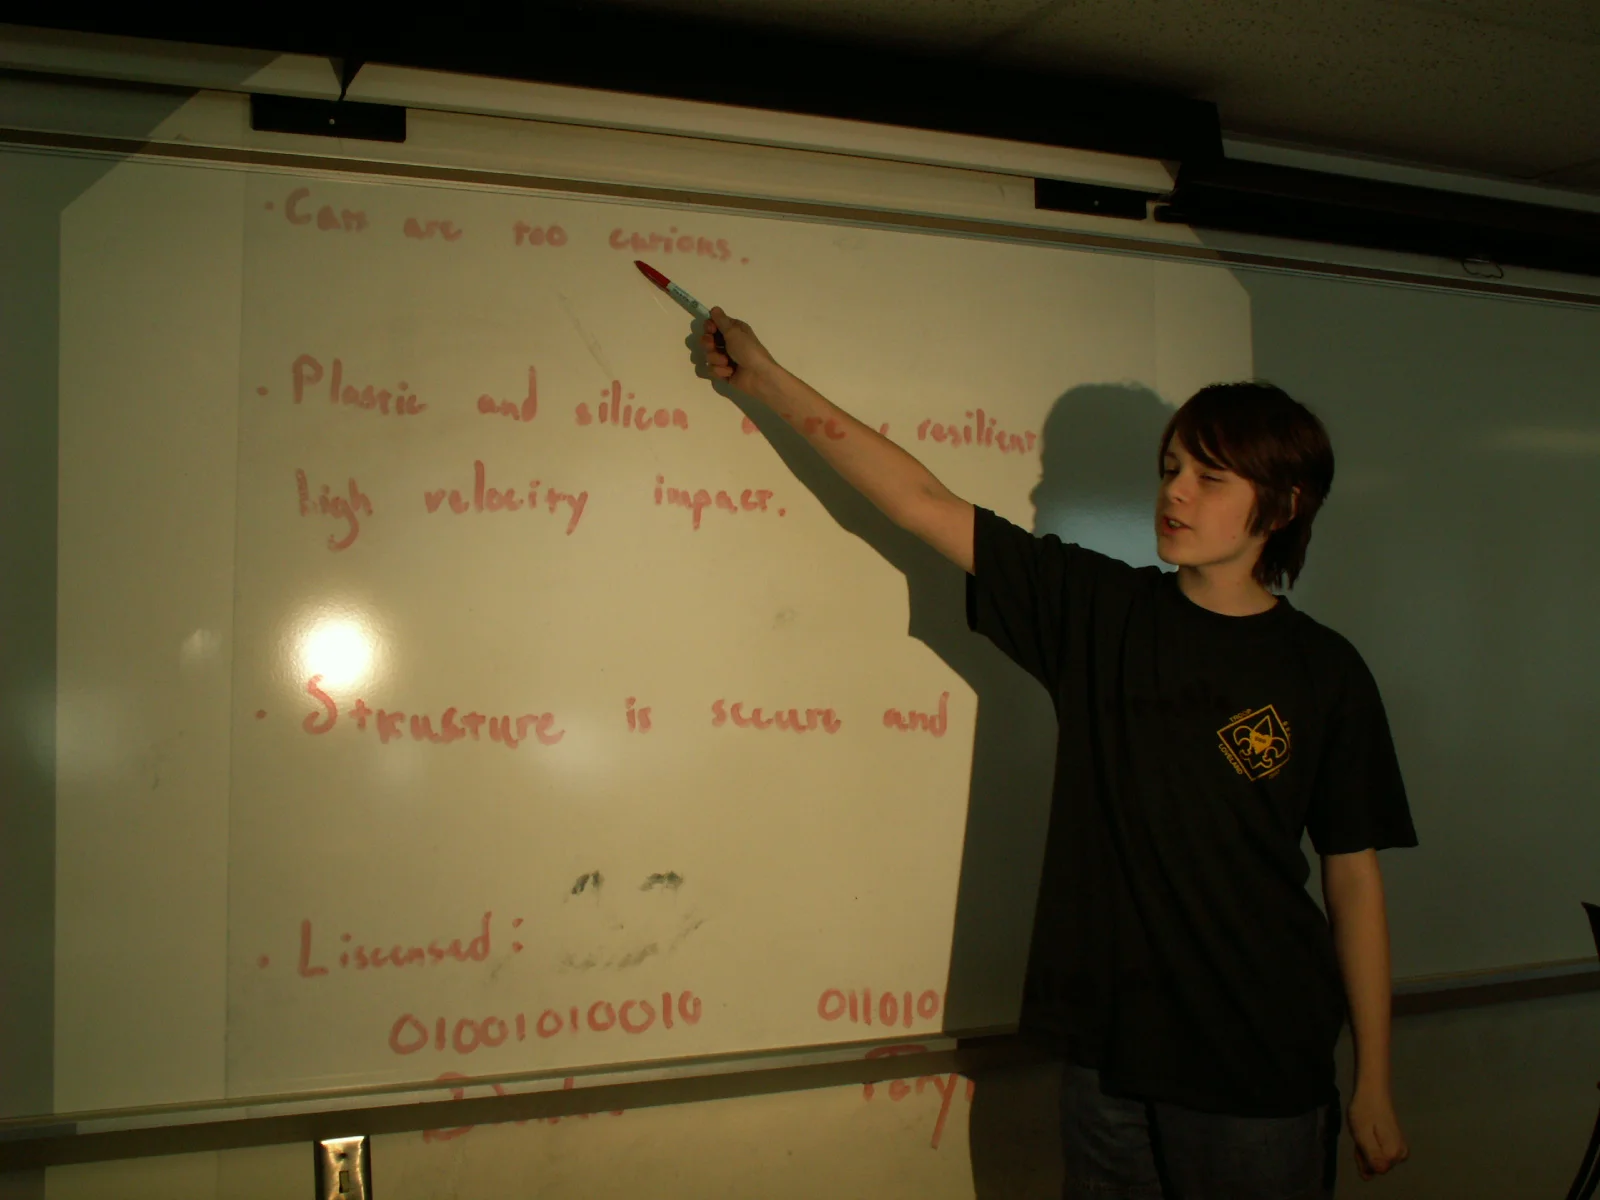 · Cats are too curious.
· Plastic and silicon are resilient
high velocity impact.
· Structure is secure and
· Liscensed:
01001010010 011010
TROOP
LOVELAND